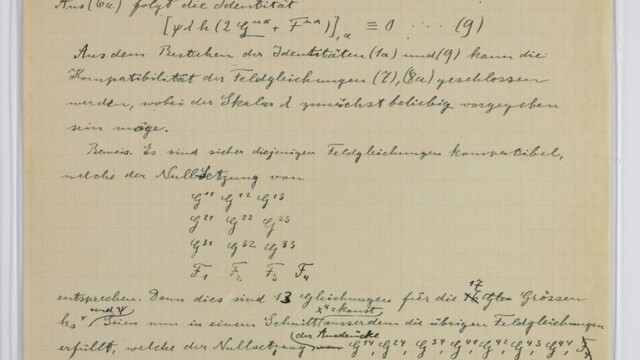 Aus (6a) folgt die Identität
[ψ λ h (2 G^{μα} + F^{μα})],α ≡ 0 ····· (9)
Aus dem Bestehen der Identitäten (1a) und (9) kann die
Kompatibilität der Feldgleichungen (7), (8a) geschlossen
werden, wobei der Skalar λ zunächst beliebig vorgegeben
sein möge.
Beweis. Es sind sicher diejenigen Feldgleichungen kompatibel,
welche der Nullsetzung von
G¹¹ G¹² G¹³
G²¹ G²² G²³
G³¹ G³² G³³
F₁ F₂ F₃ F₄
entsprechen. Denn dies sind 13 Gleichungen für die 17 Grössen
und ψ x⁴ = konst
hₛᵛ Seien nun in einem Schnitt ausserdem die übrigen Feldgleichungen
der Ausdrücke
erfüllt, welche der Nullsetzung G¹⁴, G²⁴, G³⁴, G⁴¹, G⁴², G⁴³, G⁴⁴,